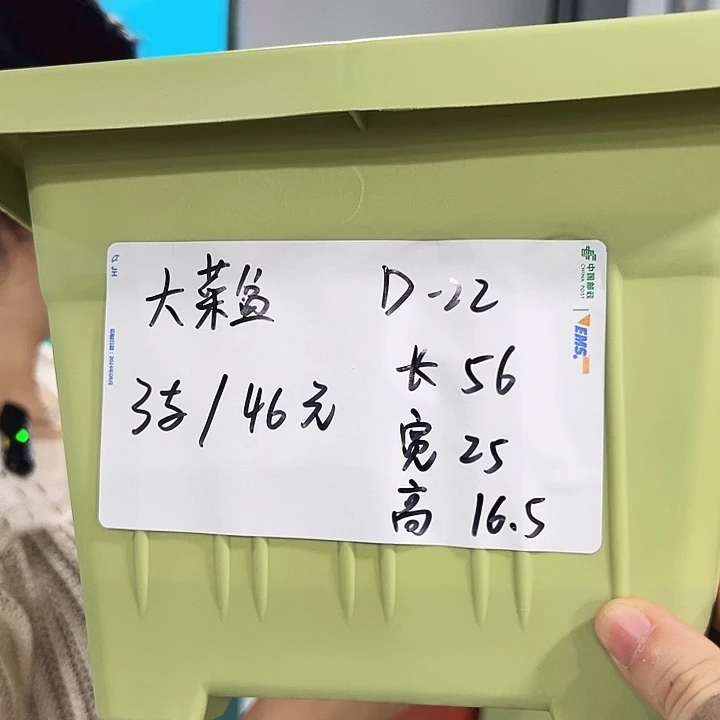 大菜盆
3支/46元
D-22
长 56
宽 25
高 16.5
中国邮政
CHINA POST
EMS
JH